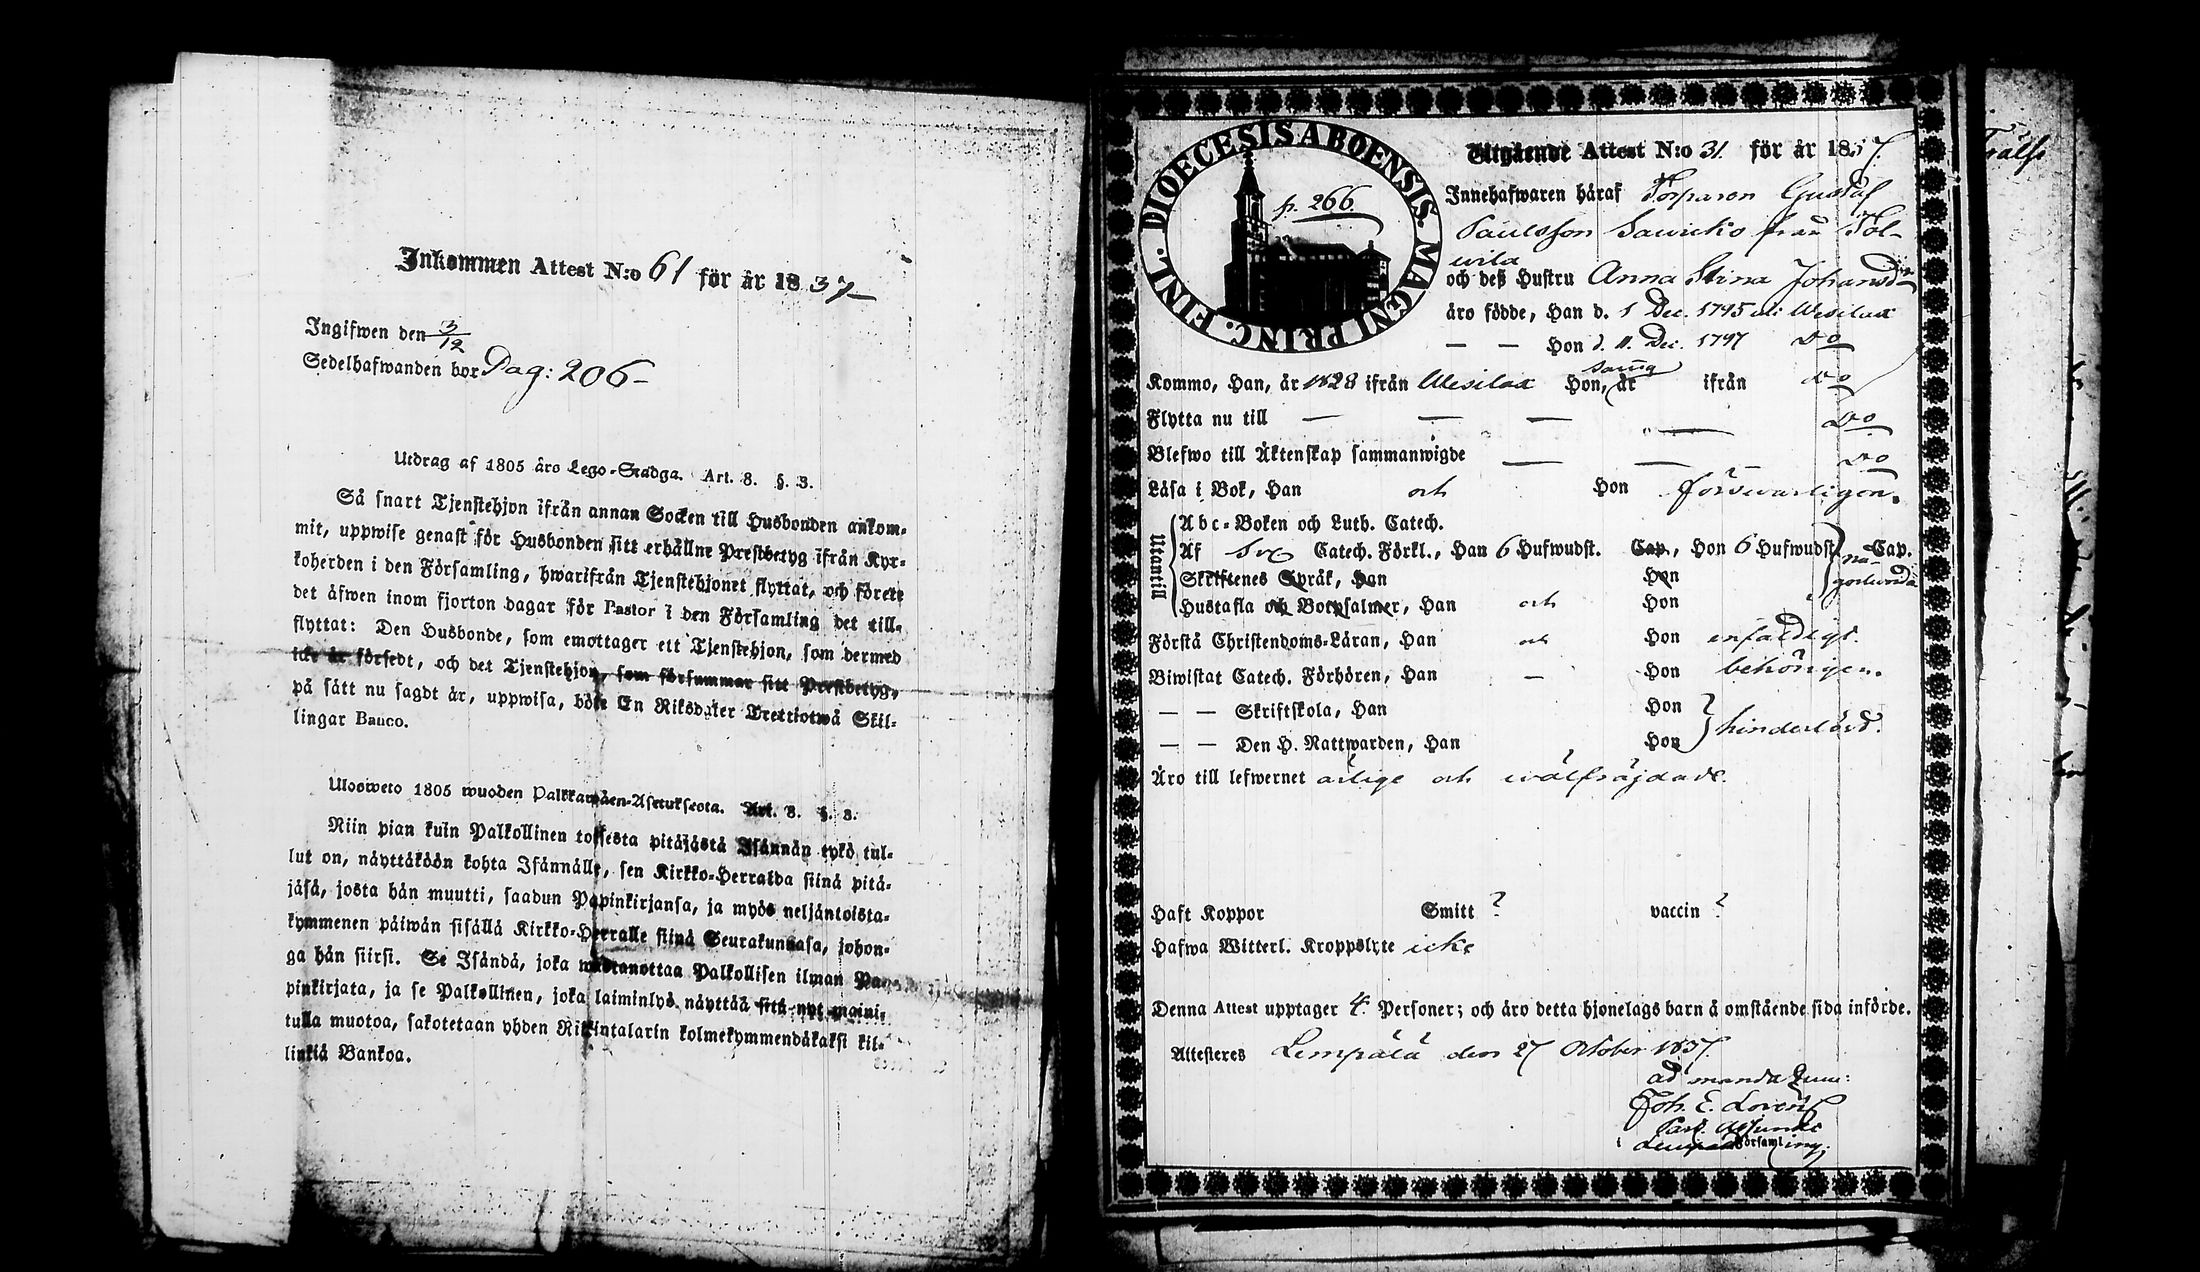 Inkommen Attest N:o 61 för år 1837
Ingifwen den 3/12
Sedelhafwanden bor Pag: 206
Utdrag af 1805 års Lego-Stadga. Art. 8. §. 3.
Så snart Tjenstehjon ifrån annan Socken till Husbonden ankom-
mit, uppwise genast för Husbonden sitt erhållne Prestbetyg ifrån Kyr-
koherden i den Församling, hwarifrån Tjenstehjonet flyttat, och förete
det äfwen inom fjorton dagar för Pastor i den Församling det till-
flyttat: Den Husbonde, som emottager ett Tjenstehjon, som dermed
icke är försedt, och det Tjenstehjon, som försummar sitt Prestbetyg,
på sätt nu sagdt är, uppwisa, böte En Riksdaler Trettiotwå Skil-
lingar Banco.
Ulosweto 1805 wuoden Palkkawäen-Asetuksesta. Art. 8. §. 3.
Niin pian kuin Palkollinen toisesta pitäjästä Isännän tykö tul-
lut on, näyttäköön kohta Isännälle, sen Kirkko-Herralda siinä pitä-
jäsä, josta hän muutti, saadun Papinkirjansa, ja myös neljäntoista-
kymmenen päiwän sisällä Kirkko-Herralle siinä Seurakunnasa, johon-
ga hän siirsi. Se Isändä, joka wastanottaa Palkollisen ilman Pa-
pinkirjata, ja se Palkollinen, joka laiminlyö näyttää sitä nyt maini-
tulla muotoa, sakotetaan yhden Riikintalarin kolmekymmendäkaksi kil-
linkiä Bankoa.
DIOECESIS ABOENSIS. MAGNI PRINC. FINL.
p. 266
Utgående Attest N:o 31 för år 1837.
Innehafwaren häraf Torparen Gustaf
Paulsson Sawicko från Tol-
wila
och deß Hustru Anna Stina Johansdr
äro födde, Han d. 1 Dec. 1795 i Wesilax
— — Hon d. 11. Dec. 1797 Do
Kommo, Han, år 1828 ifrån Wesilax Hon, samma år ifrån Do
Flytta nu till — — — — Do
Blefwo till Äktenskap sammanwigde — — Do
Läsa i Bok, Han och Hon försvarligen.
Utantill
Abc-Boken och Luth. Catech.
Af Sv. Catech. Förkl., Han 6 Hufwudst. Cap., Hon 6 Hufwudst. Cap.
nå-
gorlunda
Skriftenes Språk, Han Hon
Hustafla och Botpsalmer, Han och Hon
Förstå Christendoms-Läran, Han och Hon enfaldigt.
Biwistat Catech. Förhören, Han — Hon behörigen.
— — Skriftskola, Han Hon
hinderlösd.
— — Den H. Nattwarden, Han Hon
Äro till lefwernet ärlige och wälfräjdade.
Haft Koppor Smitt ? vaccin ?
Hafwa Witterl. Kroppslyte icke
Denna Attest upptager 4 Personer; och äro detta hjonelags barn å omstående sida införde.
Attesteres Lempälä den 27 October 1837.
ad mandatum:
Joh. E. Lorent
Past. Adjunct
i Lempälä Församling.